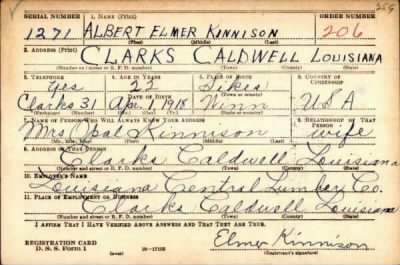 256
SERIAL NUMBER 1. NAME (Print) ORDER NUMBER
1271 ALBERT ELMER KINNISON 206
(First) (Middle) (Last)
2. ADDRESS (Print)
CLARKS CALDWELL LOUISIANA
(Number and street or R. F. D. number) (Town) (County) (State)
3. TELEPHONE 4. AGE IN YEARS 5. PLACE OF BIRTH 6. COUNTRY OF CITIZENSHIP
Yes 22 Sikes
DATE OF BIRTH (Town or county)
Clarks 31 Apr. 1 1918 Winn USA
(Exchange) (Number) (Mo.) (Day) (Yr.) (State or country)
7. NAME OF PERSON WHO WILL ALWAYS KNOW YOUR ADDRESS 8. RELATIONSHIP OF THAT PERSON
Mrs Opal Kinnison wife
(Mr., Mrs., Miss) (First) (Middle) (Last)
9. ADDRESS OF THAT PERSON
Clarks Caldwell Louisiana
(Number and street or R. F. D. number) (Town) (County) (State)
10. EMPLOYER'S NAME
Louisiana Central Lumber Co.
11. PLACE OF EMPLOYMENT OR BUSINESS
Clarks Caldwell Louisiana
(Number and street or R. F. D. number) (Town) (County) (State)
I AFFIRM THAT I HAVE VERIFIED ABOVE ANSWERS AND THAT THEY ARE TRUE.
REGISTRATION CARD Elmer Kinnison
D. S. S. Form 1 16—17105 (Registrant's signature)